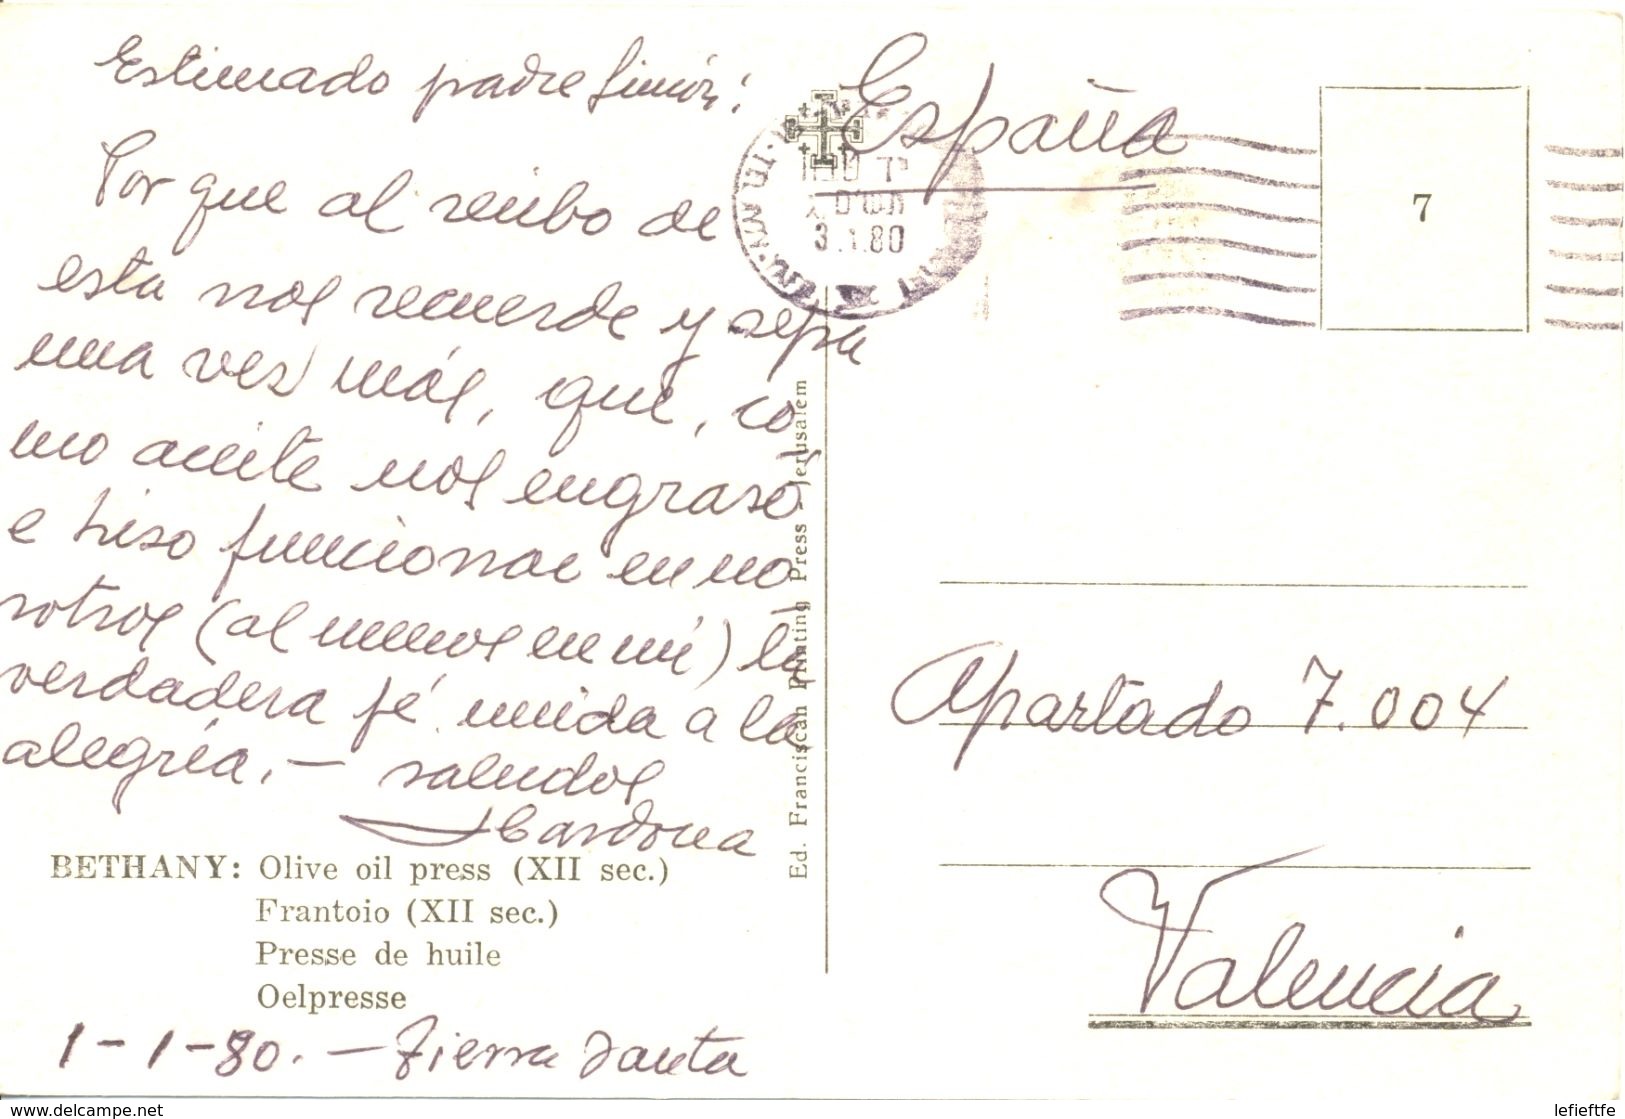 Estimado padre Simón:
Por que al recibo de
esta nos recuerde y sepa
una vez más, que, co
mo aceite nos engrasó
e hiso funcionar en no
sotros (al menos en mi) la
verdadera fé unida a la
alegría. — saludos
Cardona
BETHANY: Olive oil press (XII sec.)
Frantoio (XII sec.)
Presse de huile
Oelpresse
1-1-80. — Tierra Santa
Ed. Franciscan Printing Press - Jerusalem
España
3.1.80
7
Apartado 7.004
Valencia
www.delcampe.net
lefieftfe